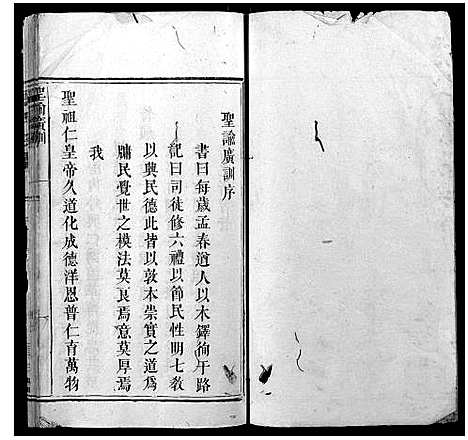 聖諭廣訓序
書曰每歲孟春遒人以木鐸徇于路
記曰司徒修六禮以節民性明七教
以興民德此皆以敦本崇實之道為
牖民覺世之模法莫良焉意莫厚焉
我
聖祖仁皇帝久道化成德洋恩普仁育萬物
聖諭廣訓